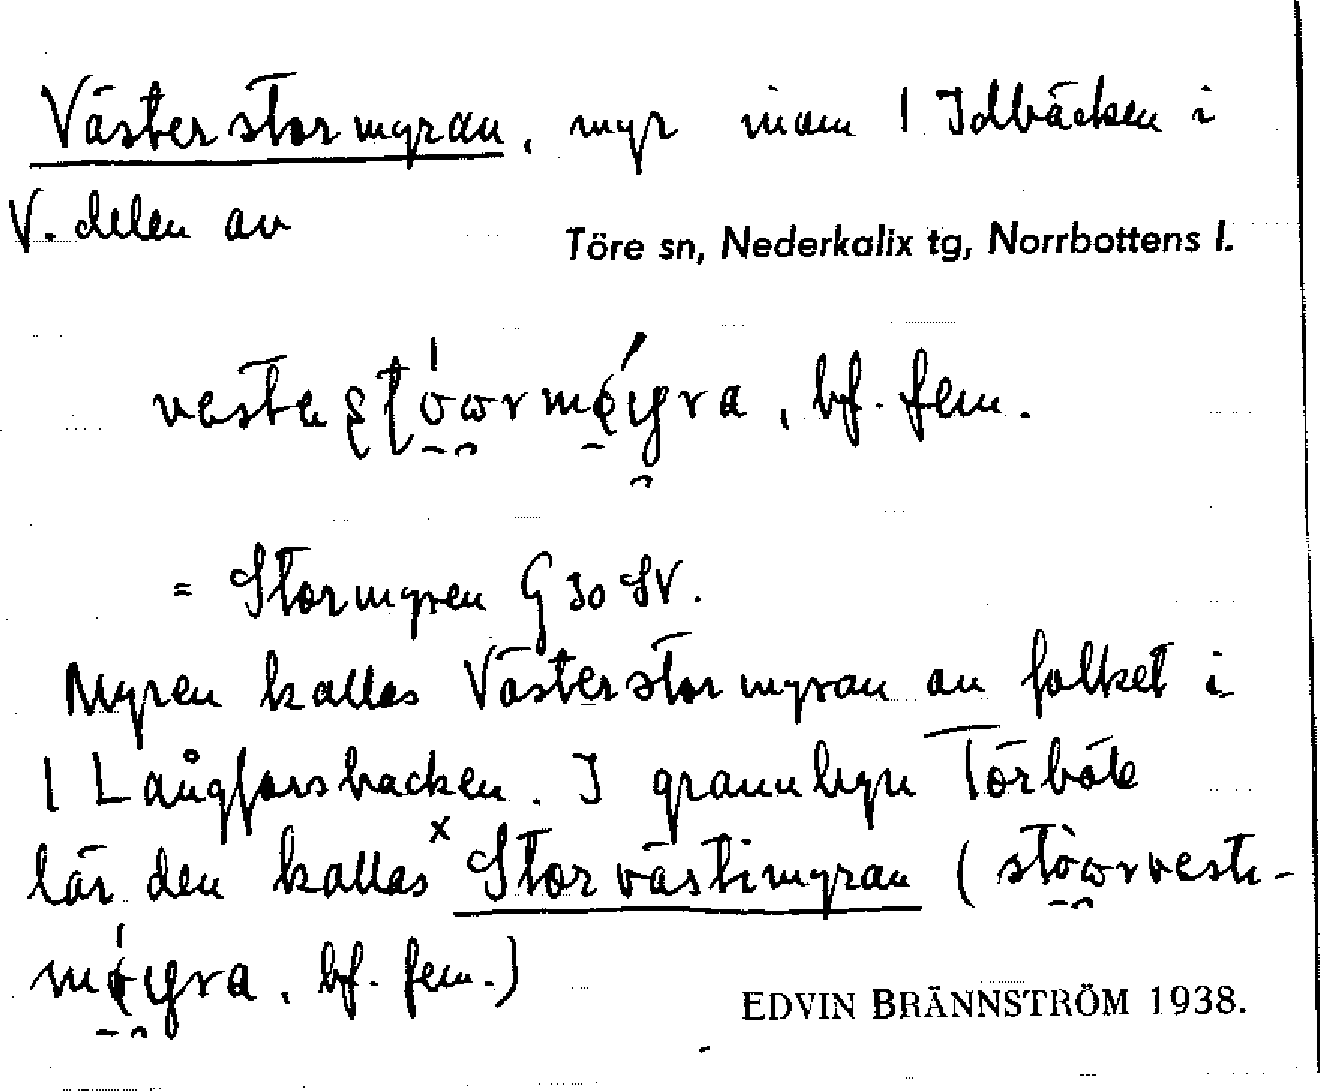 Västerstormyran, myr inom 1 Idbäcken i
V. delen av
Töre sn, Nederkalix tg, Norrbottens l.
bf. fem.
= Stormyren G 30 SV.
Myren kallas Västerstormyran av folket i
1 Långforsbacken. I grannbyn Törböle
lär den kallas x Storvästimyran (
bf. fem.)
EDVIN BRÄNNSTRÖM 1938.